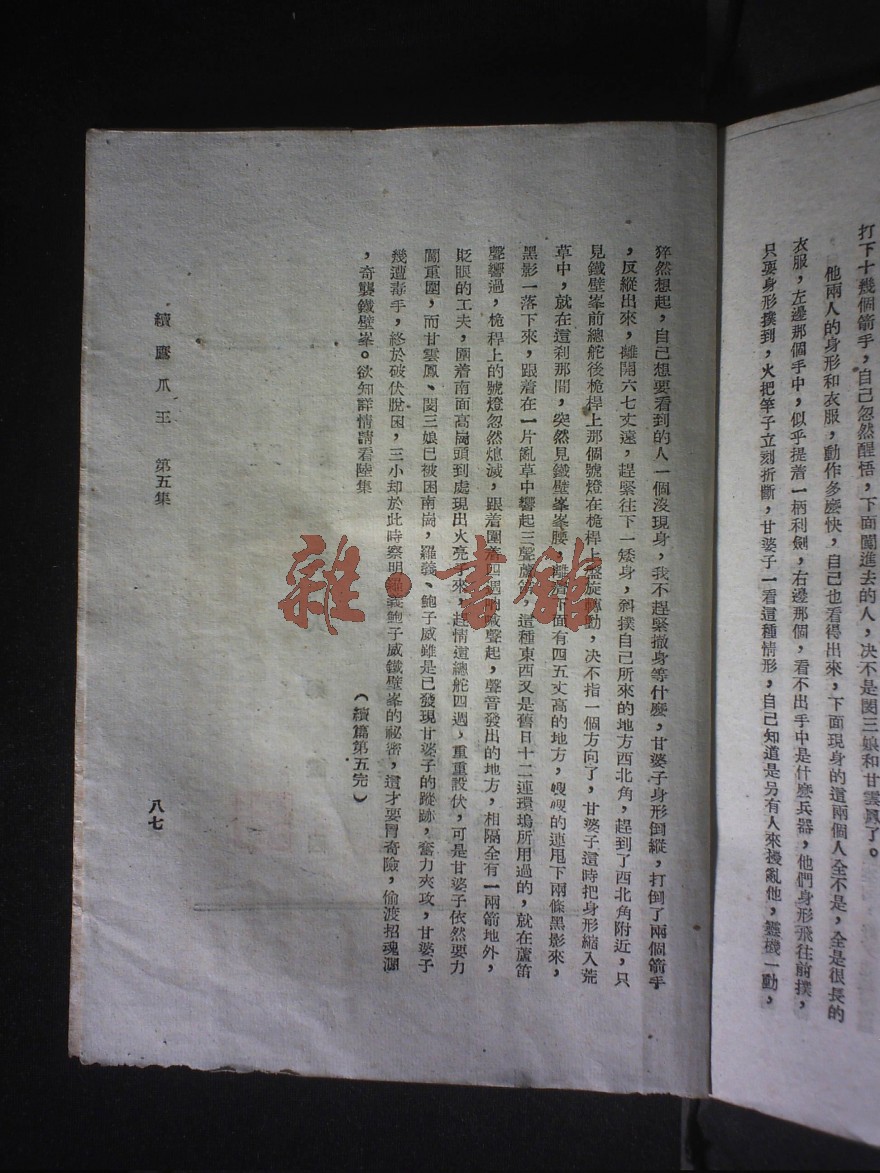 打下十幾個箭手，自己忽然醒悟，下面闖進去的人，决不是閔三娘和甘雲鳳了。
他兩人的身形和衣服，動作多麽快，自己也看得出來，下面現身的這兩個人全不是，全是很長的
衣服，左邊那個手中，似乎提着一柄利劍，右邊那個，看不出手中是什麽兵器，他們身形飛往前撲，
只要身形撲到，火把竿子立刻折斷，甘婆子一看這種情形，自己知道是另有人來擾亂他，靈機一動，
猝然想起，自己想要看到的人一個沒現身，我不趕緊撤身等什麽，甘婆子身形倒縱，打倒了兩個箭手
，反縱出來，離開六七丈遠，趕緊往下一矮身，斜撲自己所來的地方西北角，趕到了西北角附近，只
見鐵壁峯前總舵後桅桿上那個號燈在桅桿上盤旋轉動，决不指一個方向了，甘婆子這時把身形縮入荒
草中，就在這刹那間，突然見鐵壁峯峯腰，離着下面有四五丈高的地方，嗖嗖的連甩下兩條黑影來，
黑影一落下來，跟着在一片亂草中響起三聲蘆笛，這種東西又是舊日十二連環塢所用過的，就在蘆笛
聲響過，桅桿上的號燈忽然熄滅，跟着圍着四週吶喊聲起，聲音發出的地方，相隔全有一兩箭地外，
眨眼的工夫，圍着南面高崗頭到處現出火亮子來，趕情這總舵四週，重重設伏，可是甘婆子依然要力
闖重圍，而甘雲鳳、閔三娘已被困南崗，羅義、鮑子威雖是已發現甘婆子的蹤跡，奮力夾攻，甘婆子
幾遭毒手，終於破伏脫困，三小却於此時察明羅義鮑子威鐵壁峯的秘密，這才要冒奇險，偷渡招魂澗
，奇襲鐵壁峯。欲知詳情請看陸集
（續篇第五完）
續鷹爪王　第五集
八七
雜·書館